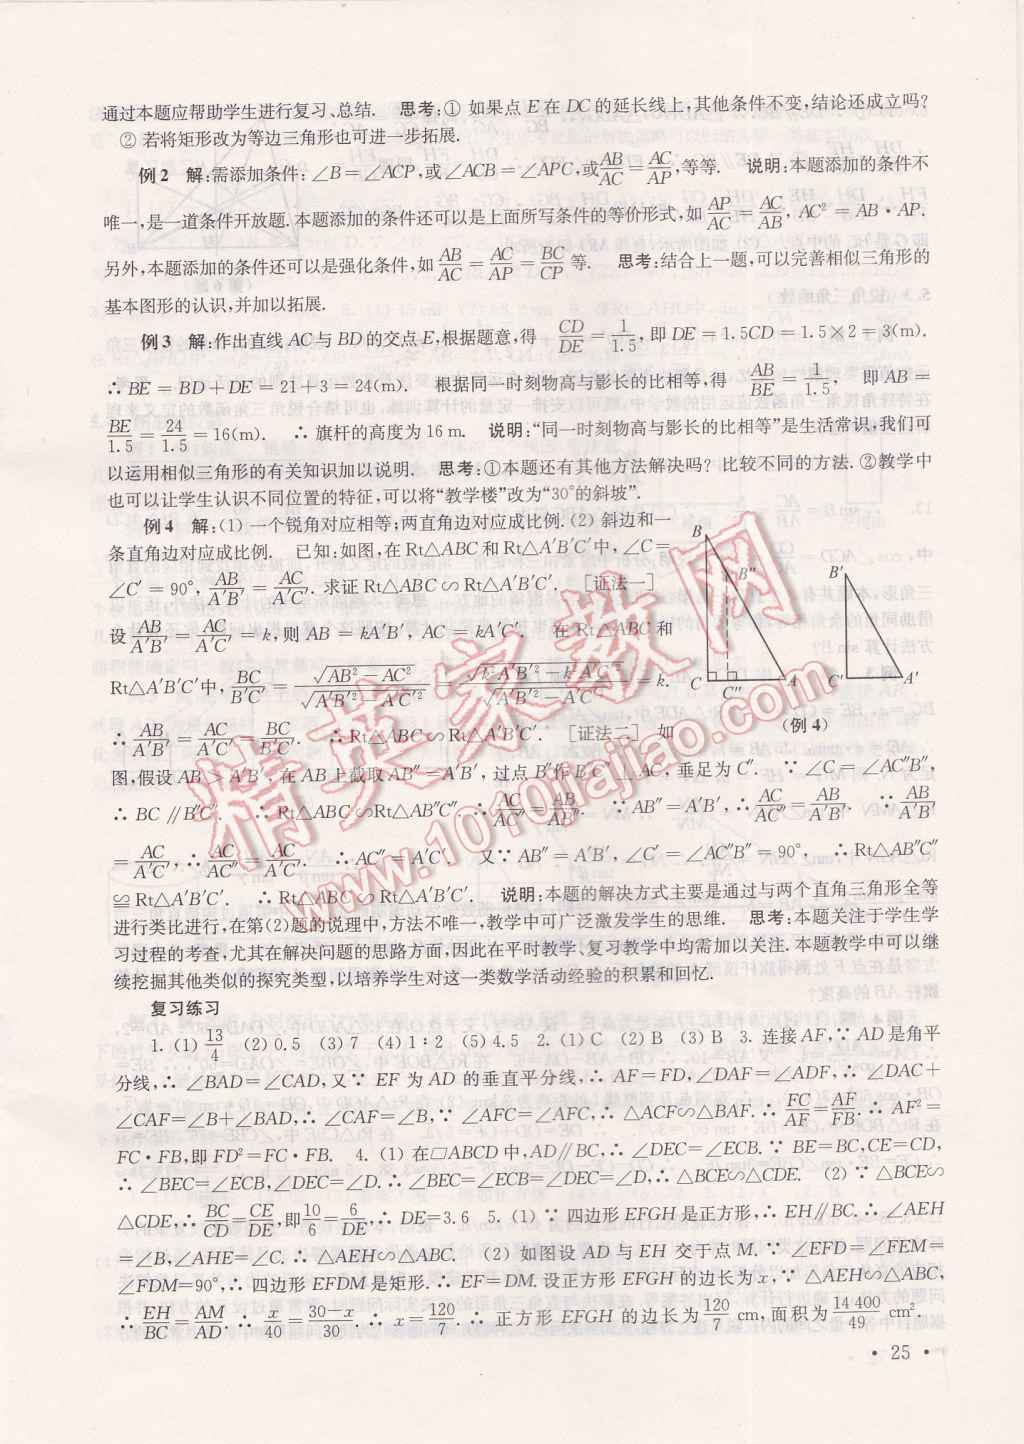 通过本题应帮助学生进行复习、总结. 思考:① 如果点 E 在 DC 的延长线上,其他条件不变,结论还成立吗?
② 若将矩形改为等边三角形也可进一步拓展.
例2 解:需添加条件:∠B=∠ACP,或∠ACB=∠APC,或AB/AC=AC/AP,等等. 说明:本题添加的条件不
唯一,是一道条件开放题.本题添加的条件还可以是上面所写条件的等价形式,如AP/AC=AC/AB, AC²=AB·AP.
另外,本题添加的条件还可以是强化条件,如AB/AC=AC/AP=BC/CP等. 思考:结合上一题,可以完善相似三角形的
基本图形的认识,并加以拓展.
例3 解:作出直线 AC 与 BD 的交点 E,根据题意,得 CD/DE=1/1.5,即 DE=1.5CD=1.5×2=3(m).
∴ BE=BD+DE=21+3=24(m). 根据同一时刻物高与影长的比相等,得 AB/BE=1/1.5, 即 AB=
BE/1.5=24/1.5=16(m). ∴ 旗杆的高度为 16 m. 说明:“同一时刻物高与影长的比相等”是生活常识,我们可
以运用相似三角形的有关知识加以说明. 思考:①本题还有其他方法解决吗? 比较不同的方法.②教学中
也可以让学生认识不同位置的特征,可以将“教学楼”改为“30°的斜坡”.
例4 解:(1) 一个锐角对应相等;两直角边对应成比例.(2) 斜边和一
条直角边对应成比例. 已知:如图,在 Rt△ABC 和 Rt△A′B′C′中,∠C=
∠C′=90°, AB/A′B′=AC/A′C′. 求证 Rt△ABC∽Rt△A′B′C′. [证法一]
设AB/A′B′=AC/A′C′=k,则 AB=kA′B′, AC=kA′C′. 在 Rt△ABC 和
Rt△A′B′C′中, BC/B′C′=√(AB²−AC²)/√(A′B′²−A′C′²)=√(k²A′B′²−k²A′C′²)/√(A′B′²−A′C′²)=k.
∴ AB/A′B′=AC/A′C′=BC/B′C′. ∴ Rt△ABC∽Rt△A′B′C′. [证法二] 如
图,假设 AB>A′B′,在 AB 上截取 AB″=A′B′,过点 B″作 B″C″⊥AC,垂足为 C″. ∵ ∠C=∠AC″B″,
∴ BC∥B″C″. ∴ Rt△ABC∽Rt△AB″C″. ∴ AC/AC″=AB/AB″. ∵ AB″=A′B′, ∴ AC/AC″=AB/A′B′. ∵ AB/A′B′
=AC/A′C′, ∴ AC/AC″=AC/A′C′. ∴ AC″=A′C′. 又∵ AB″=A′B′, ∠C′=∠AC″B″=90°, ∴ Rt△AB″C″
≌Rt△A′B′C′. ∴ Rt△ABC∽Rt△A′B′C′. 说明:本题的解决方式主要是通过与两个直角三角形全等
进行类比进行,在第(2)题的说理中,方法不唯一,教学中可广泛激发学生的思维. 思考:本题关注于学生学
习过程的考查,尤其在解决问题的思路方面,因此在平时教学、复习教学中均需加以关注.本题教学中可以继
续挖掘其他类似的探究类型,以培养学生对这一类数学活动经验的积累和回忆.
B
B″
C
C″
A
B′
C′
A′
(例 4)
复习练习
1. (1) 13/4 (2) 0.5 (3) 7 (4) 1∶2 (5) 4.5 2. (1) C (2) B (3) B 3. 连接 AF,∵ AD 是角平
分线,∴ ∠BAD=∠CAD,又∵ EF 为 AD 的垂直平分线,∴ AF=FD,∠DAF=∠ADF,∴ ∠DAC+
∠CAF=∠B+∠BAD,∴ ∠CAF=∠B,∵ ∠AFC=∠AFC,∴ △ACF∽△BAF.∴ FC/AF=AF/FB.∴ AF²=
FC·FB,即 FD²=FC·FB. 4. (1) 在▱ABCD 中,AD∥BC,∴ ∠DEC=∠ECB.∵ BE=BC,CE=CD,
∴ ∠BEC=∠ECB,∠DEC=∠D.∴ ∠BEC=∠ECB=∠DEC=∠D,∴ △BCE∽△CDE. (2) ∵ △BCE∽
△CDE,∴ BC/CD=CE/DE,即10/6=6/DE,∴ DE=3.6 5. (1) ∵ 四边形 EFGH 是正方形,∴ EH∥BC.∴ ∠AEH
=∠B,∠AHE=∠C.∴ △AEH∽△ABC. (2) 如图设 AD 与 EH 交于点 M.∵ ∠EFD=∠FEM=
∠FDM=90°,∴ 四边形 EFDM 是矩形.∴ EF=DM.设正方形 EFGH 的边长为 x,∵ △AEH∽△ABC,
∴ EH/BC=AM/AD. ∴ x/40=(30−x)/30. ∴ x=120/7. ∴ 正方形 EFGH 的边长为120/7 cm,面积为14 400/49 cm².
· 25 ·
精英家教网
www.1010jiajiao.com